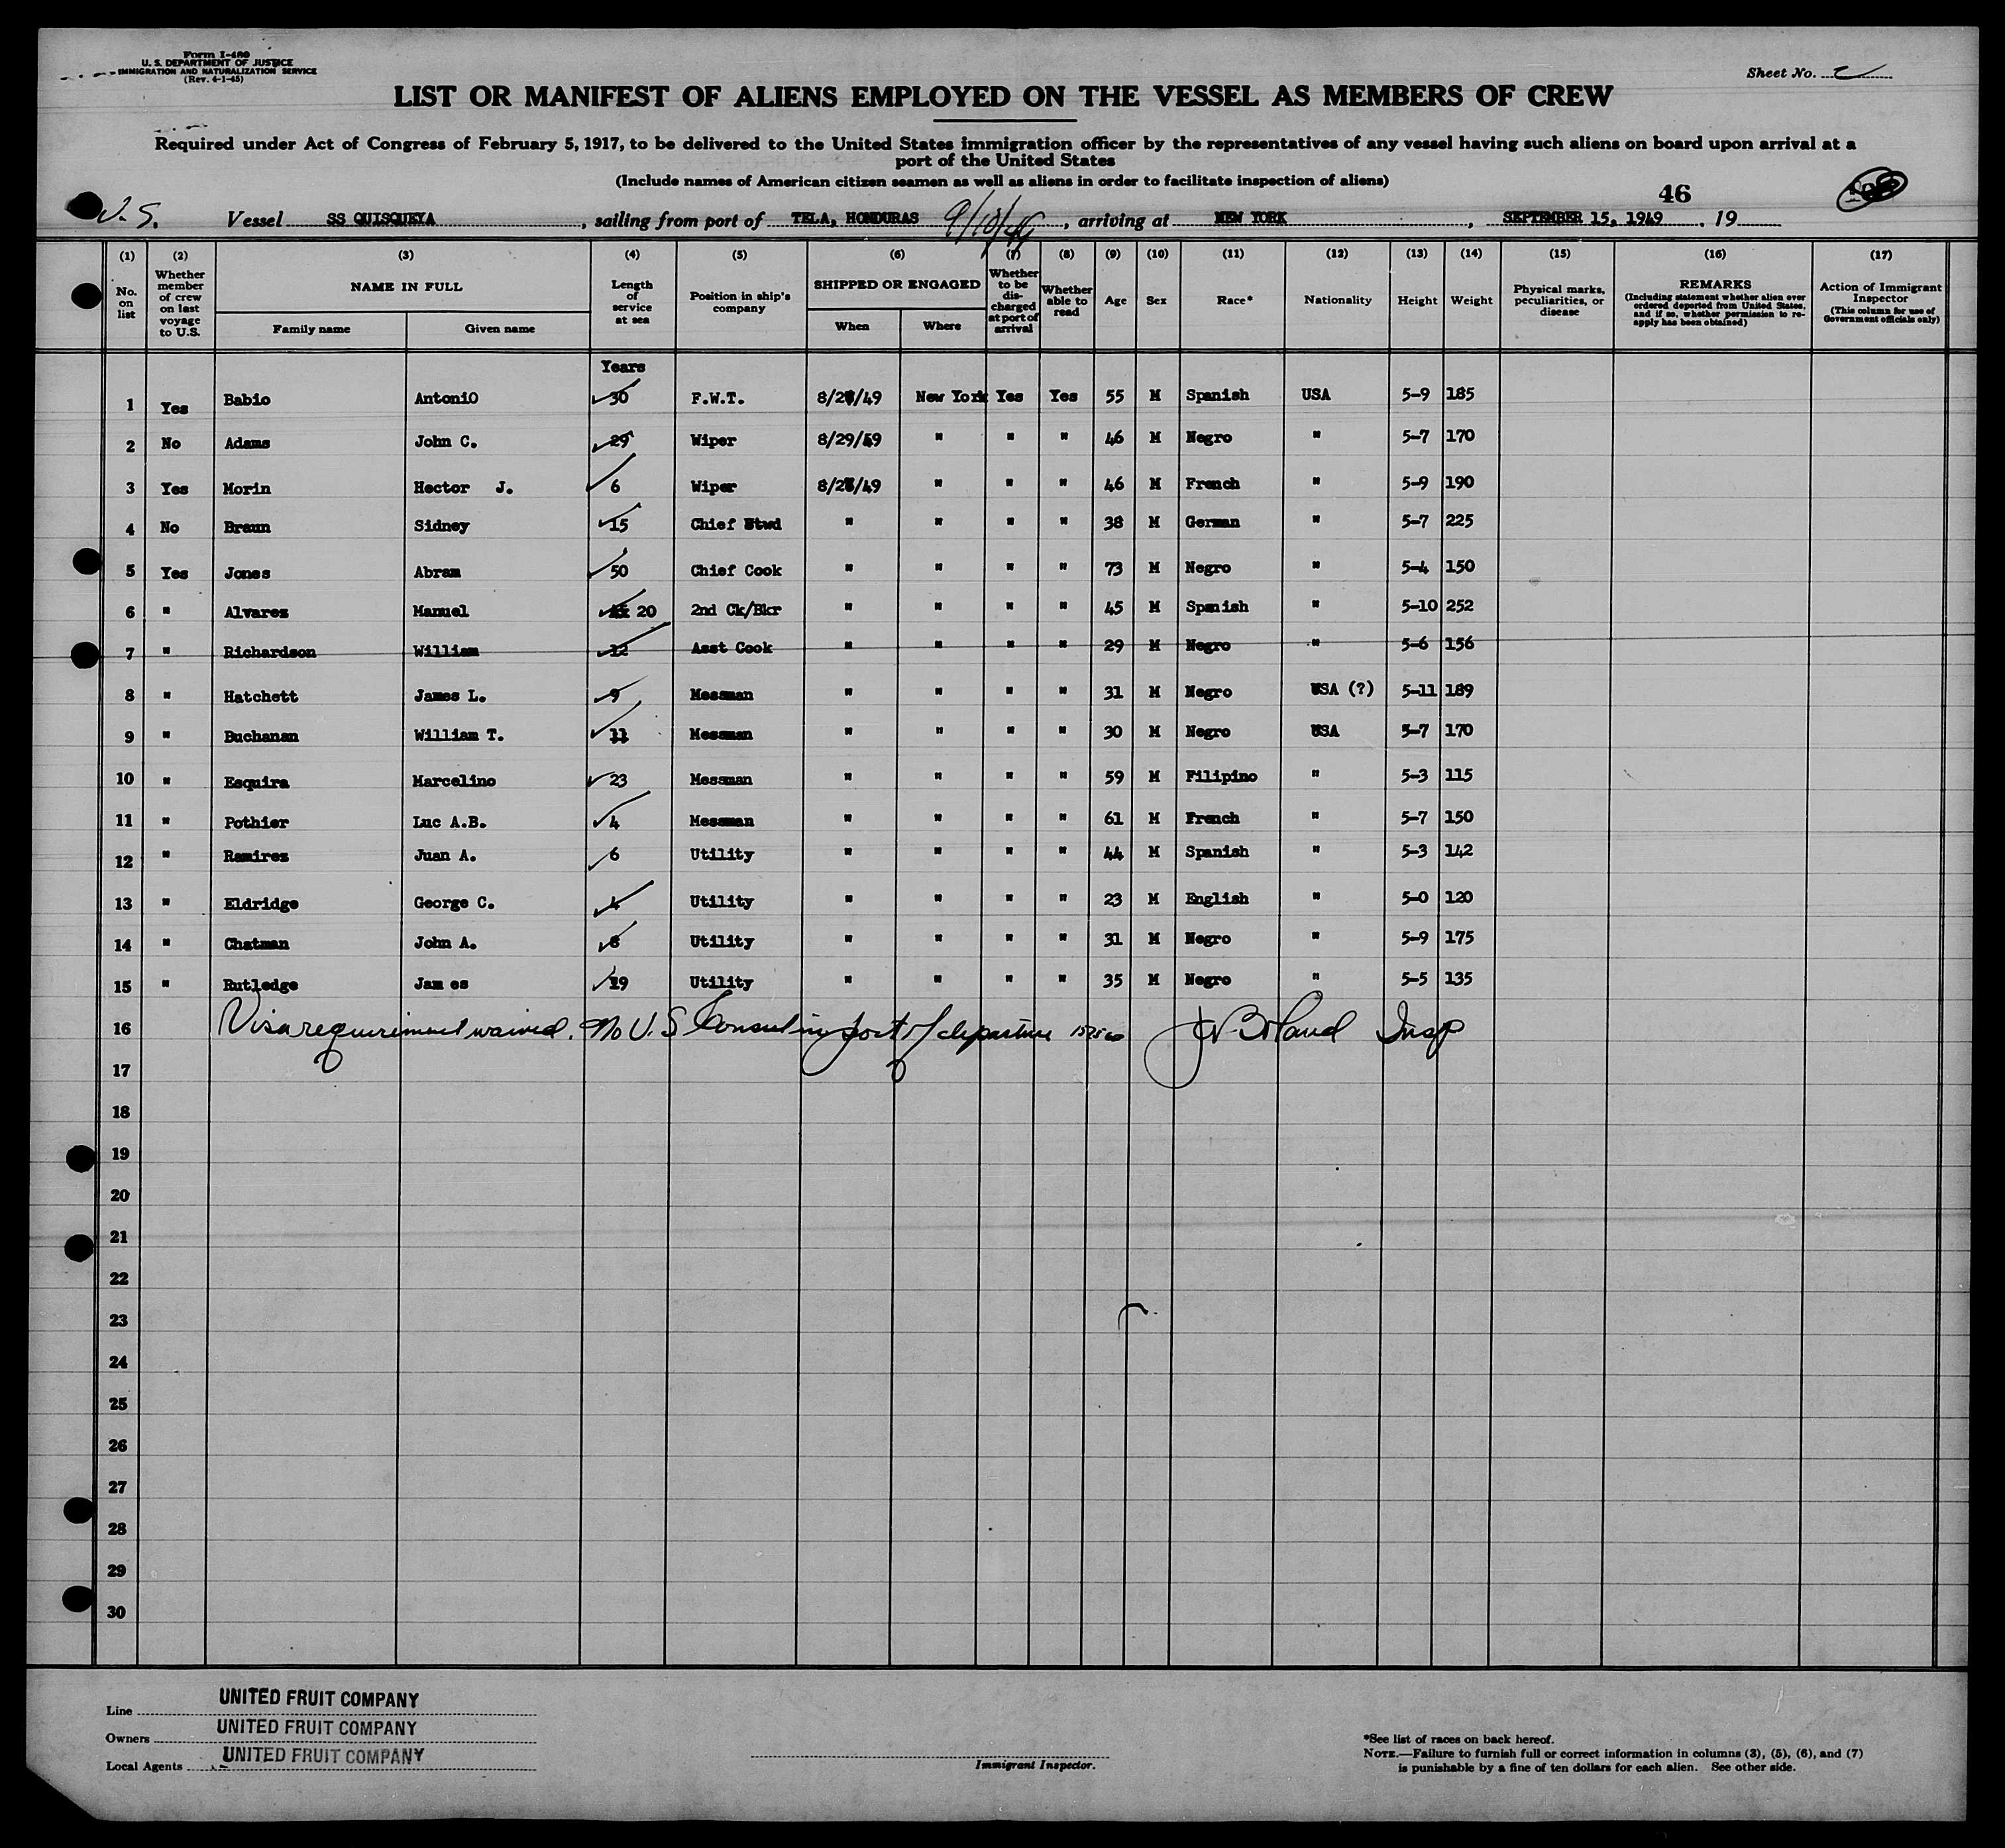 Form I-480
U. S. DEPARTMENT OF JUSTICE
IMMIGRATION AND NATURALIZATION SERVICE
(Rev. 4-1-45)
Sheet No. 2
LIST OR MANIFEST OF ALIENS EMPLOYED ON THE VESSEL AS MEMBERS OF CREW
Required under Act of Congress of February 5, 1917, to be delivered to the United States immigration officer by the representatives of any vessel having such aliens on board upon arrival at a
port of the United States
(Include names of American citizen seamen as well as aliens in order to facilitate inspection of aliens)
46
U.S. Vessel SS QUISQUEYA, sailing from port of TELA, HONDURAS 9/10/49, arriving at NEW YORK, SEPTEMBER 15, 1949, 19
(1) (2) (3) (4) (5) (6) (7) (8) (9) (10) (11) (12) (13) (14) (15) (16) (17)
No. on list
Whether member of crew on last voyage to U.S.
NAME IN FULL
Family name Given name
Length of service at sea
Position in ship's company
SHIPPED OR ENGAGED
When Where
Whether to be discharged at port of arrival
Whether able to read
Age Sex Race* Nationality Height Weight
Physical marks, peculiarities, or disease
REMARKS
(Including statement whether alien ever ordered deported from United States, and if so, whether permission to re-apply has been obtained)
Action of Immigrant Inspector
(This column for use of Government officials only)
Years
1 Yes Babio Antonio 30 F.W.T. 8/2 /49 New York Yes Yes 55 M Spanish USA 5-9 185
2 No Adams John C. 29 Wiper 8/29/49 " " " 46 M Negro " 5-7 170
3 Yes Morin Hector J. 6 Wiper 8/2 /49 " " " 46 M French " 5-9 190
4 No Braun Sidney 15 Chief Stwd " " " " 38 M German " 5-7 225
5 Yes Jones Abram 50 Chief Cook " " " " 73 M Negro " 5-4 150
6 " Alvarez Manuel 20 2nd Ck/Bkr " " " " 45 M Spanish " 5-10 252
7 " Richardson William 12 Asst Cook " " " " 29 M Negro " 5-6 156
8 " Hatchett James L. 9 Messman " " " " 31 M Negro USA (?) 5-11 189
9 " Buchanan William T. 11 Messman " " " " 30 M Negro USA 5-7 170
10 " Esquira Marcelino 23 Messman " " " " 59 M Filipino " 5-3 115
11 " Pothier Luc A.B. 4 Messman " " " " 61 M French " 5-7 150
12 " Ramirez Juan A. 6 Utility " " " " 44 M Spanish " 5-3 142
13 " Eldridge George C. 4 Utility " " " " 23 M English " 5-0 120
14 " Chatman John A. 8 Utility " " " " 31 M Negro " 5-9 175
15 " Rutledge Jam es 19 Utility " " " " 35 M Negro " 5-5 135
16 Visa requirement waived. No U.S Consul in port of departure Insp
17
18
19
20
21
22
23
24
25
26
27
28
29
30
Line UNITED FRUIT COMPANY
Owners UNITED FRUIT COMPANY
Local Agents UNITED FRUIT COMPANY
Immigrant Inspector.
*See list of races on back hereof.
NOTE.—Failure to furnish full or correct information in columns (3), (5), (6), and (7)
is punishable by a fine of ten dollars for each alien. See other side.